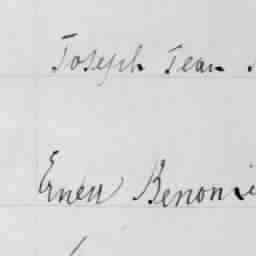 Joseph Jean
Ernest Benonie